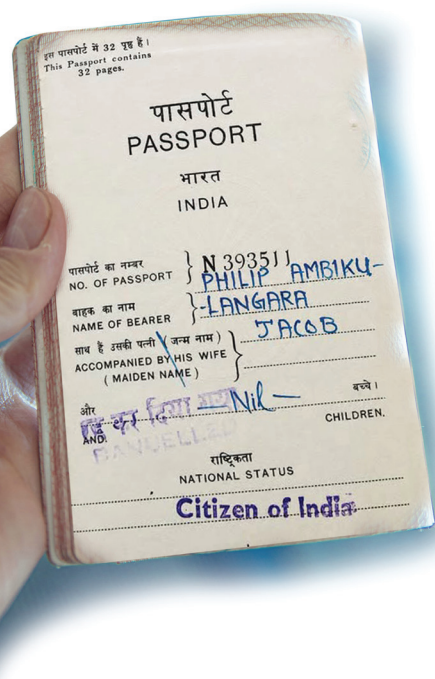 इस पासपोर्ट में 32 पृष्ठ हैं।
This Passport contains
32 pages.
पासपोर्ट
PASSPORT
भारत
INDIA
पासपोर्ट का नम्बर
NO. OF PASSPORT } N 393511
PHILIP AMBIKU-
वाहक का नाम
NAME OF BEARER } -LANGARA
JACOB
साथ हैं उसकी पत्नी (जन्म नाम)
ACCOMPANIED BY HIS WIFE
(MAIDEN NAME) }
और — Nil — बच्चे।
रद्द कर दिया गया
AND. CHILDREN.
CANCELLED
राष्ट्रिकता
NATIONAL STATUS
Citizen of India